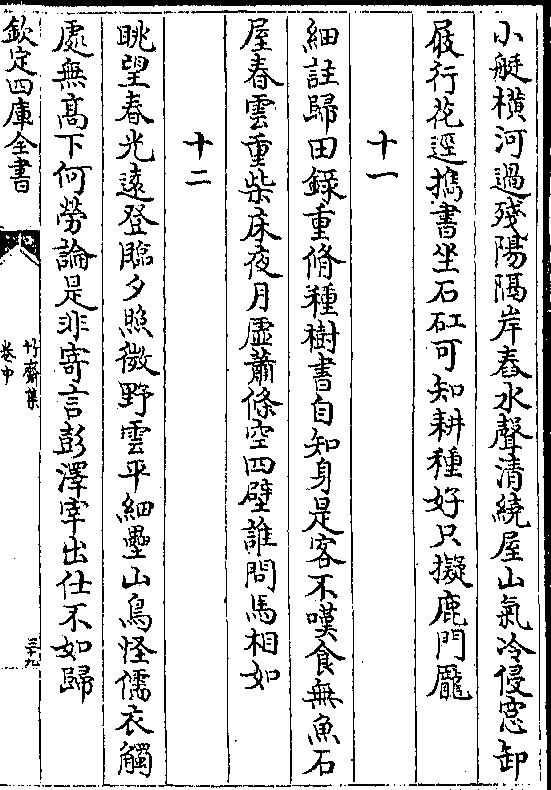 小艇橫河過殘陽隔岸舂水聲清繞屋山氣冷侵窓卸
屐行花逕攜書坐石矼可知耕種好只擬鹿門龎
十一
細註歸田錄重脩種樹書自知身是客不嘆食無魚石
屋春雲重柴床夜月虛蕭條空四壁誰問馬相如
十二
眺望春光遠登臨夕照微野雲平細壘山鳥怪儒衣觸
處無髙下何勞論是非寄言彭澤宰出仕不如歸
欽定四庫全書
竹齋集
卷中
三十九